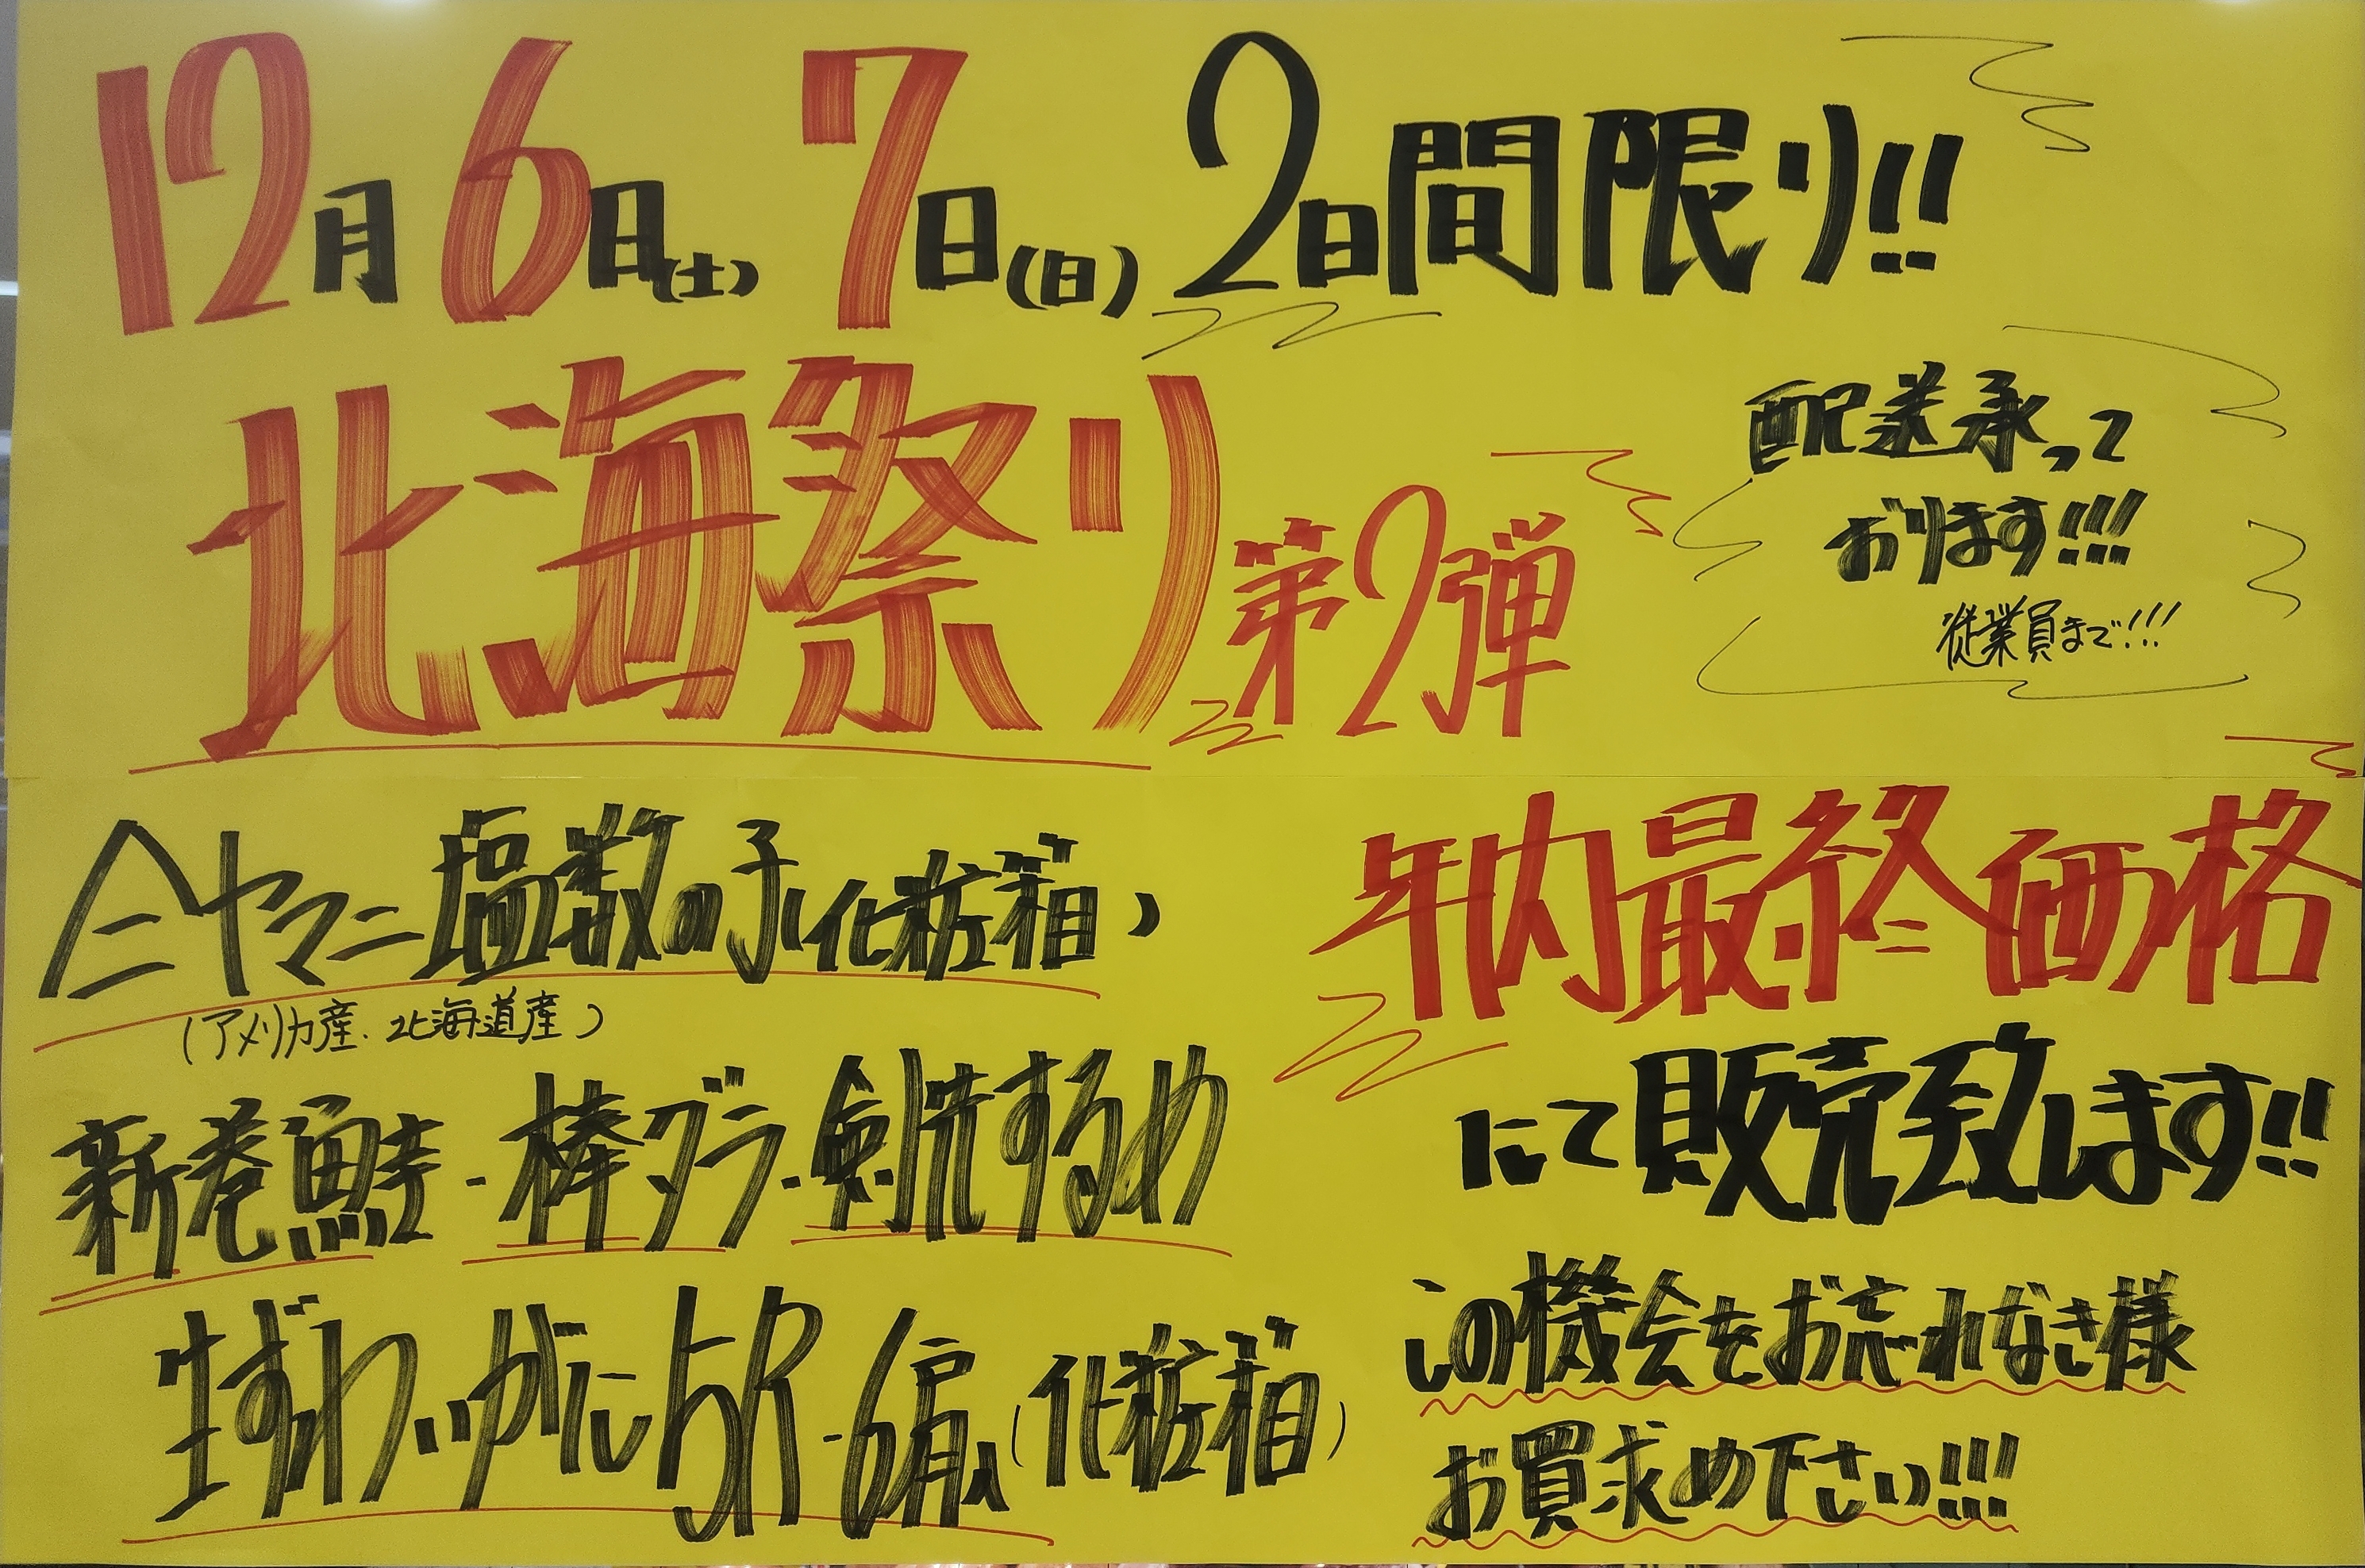 12月6日(土)7日(日)2日間限り!!
北海祭り第2弾
配送承って
おります!!!
従業員まで!!!
ヤマニ塩数の子(化粧箱)
(アメリカ産、北海道産)
新巻鮭・棒ダラ・剣先するめ
生ずわいがに5R・6肩(化粧箱)
年内最終価格
にて販売致します!!
この機会をお忘れなき様
お買求め下さい!!!